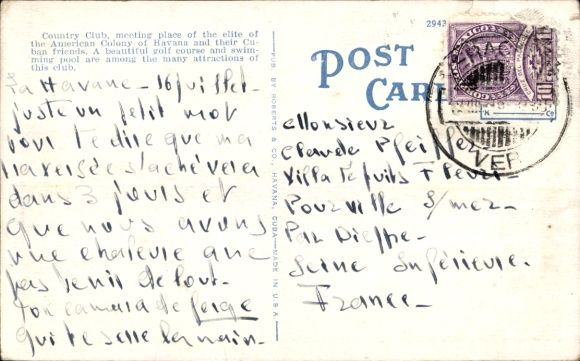 Country Club, meeting place of the elite of
the American Colony of Havana and their Cu-
ban friends. A beautiful golf course and swim-
ming pool are among the many attractions of
this club.
La Havane - 16 juillet -
juste un petit mot
pour te dire que ma
traversée s'achèvera
dans 3 jours et
que nous avons
une chaleur que
pas tenir de tout.
Ton camarade
qui te serre la main -
PUB. BY ROBERTS & CO., HAVANA, CUBA - MADE IN U.S.A.
POST
CARD
2943
VER
Monsieur
Claude Pfeiffer
Villa Le puits Fleuri -
Pourville s/mer -
Par Dieppe -
Seine Inférieure.
France -